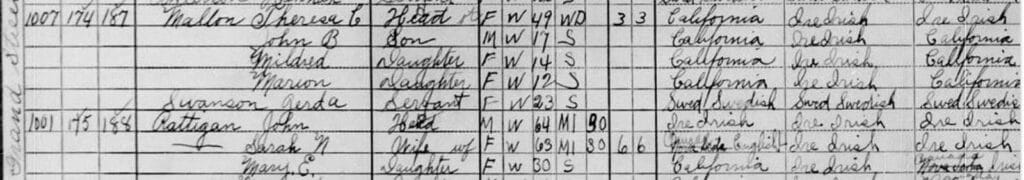 1007 174 187 Mallon Theresa C Head F W 49 WD 3 3 California Ire Irish Ire Irish
John B Son M W 17 S California Ire Irish California
Mildred Daughter F W 14 S California Ire Irish California
Marion Daughter F W 12 S California Ire Irish California
Swanson Gerda Servant F W 23 S Swed Swedish Swed Swedish Swed Swedish
1001 175 188 Rattigan John Head M W 64 M1 30 Ire Irish Ire Irish Ire Irish
Sarah N Wife F W 63 M1 30 6 6 English Ire Irish Ire Irish
Mary E. Daughter F W 30 S California Ire Irish